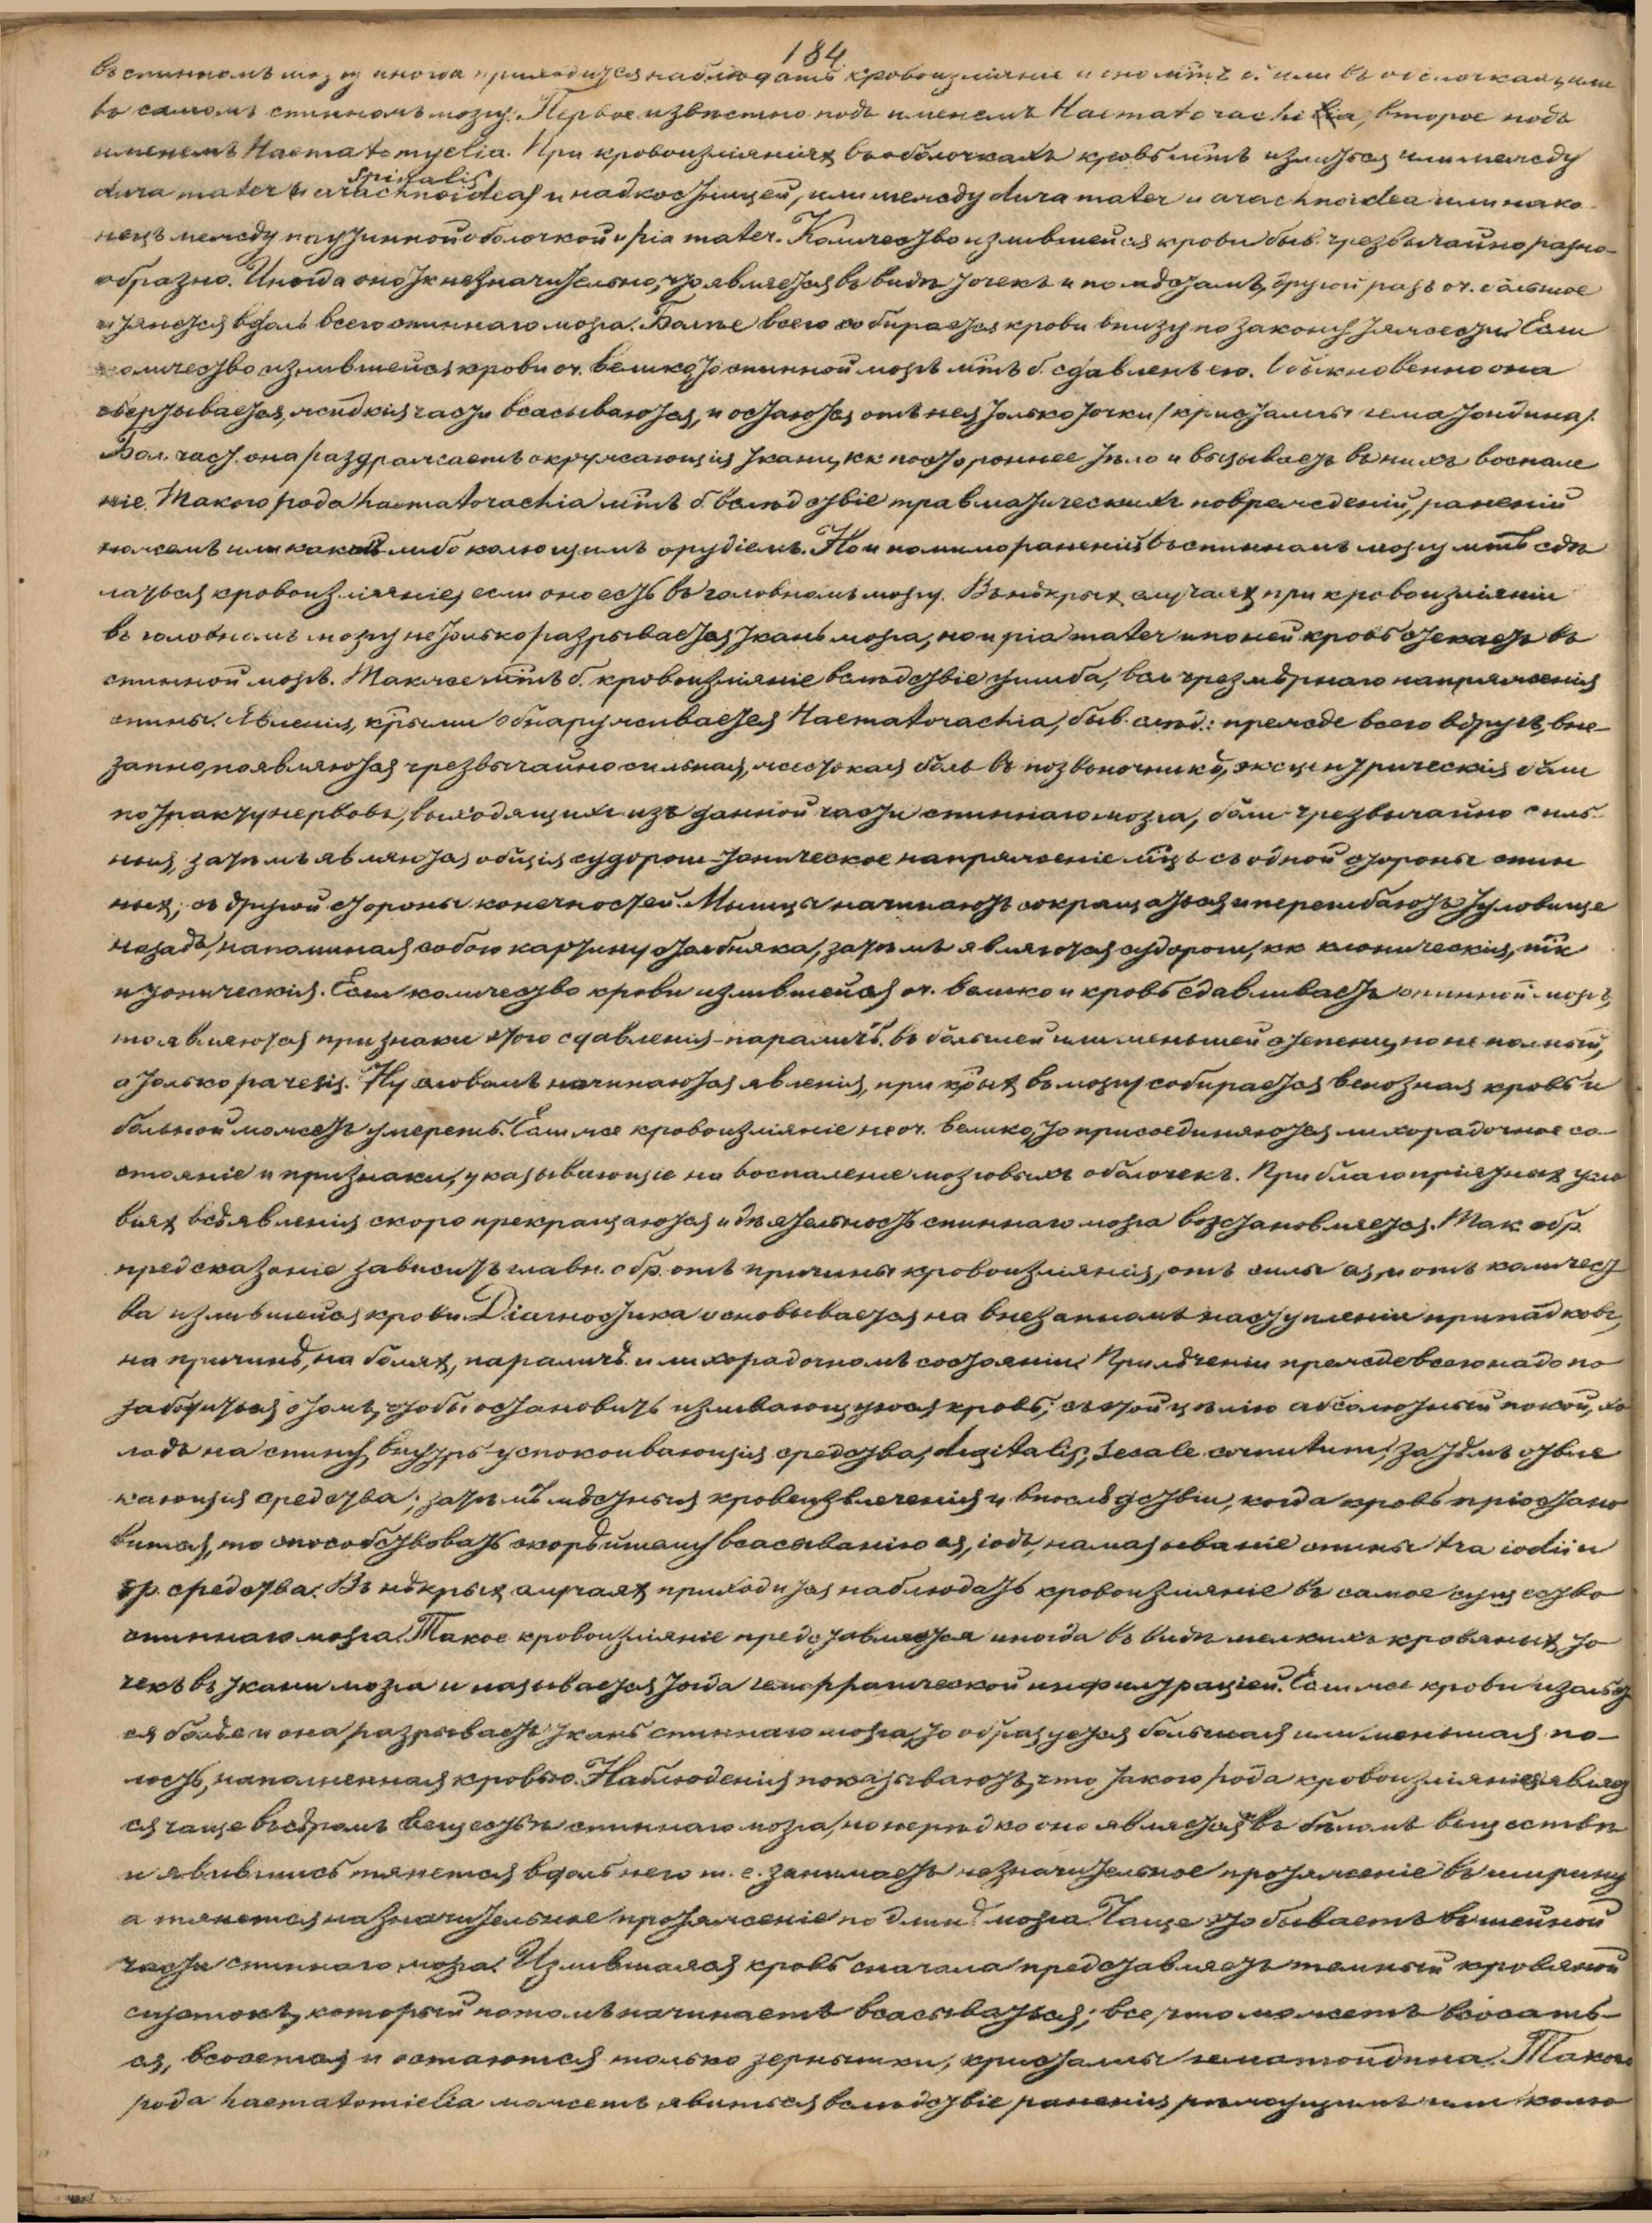 184
въ спинномъ мозгу иногда приходится наблюдать кровоизліяніе и оно м͠тъ б. или въ оболочкахъ, или
въ самомъ спинномъ мозгу. Первое извѣстно подъ именемъ Haematorachia, второе подъ
именемъ Haematomyelia. При кровоизліяніяхъ въ оболочкахъ кровь м͠тъ излиться или между
spinalis
dura mater и arachnoidea и надкостницей, или между dura mater и arachnoidea или нако
нецъ между паутинной оболочкой и pia mater. Количество излившейся крови быв. чрезвычайно разно-
образно. Иногда оно такъ незначительно, что является въ видѣ точекъ и по мѣстамъ, другой разъ оч. большое
и тянется вдоль всего спиннаго мозга. Болѣе всего собирается крови внизу по закону тяжести. Если
количество излившейся крови оч. велико, то спинной мозгъ м͠тъ б. сдавленъ ею. Обыкновенно она
свертывается, жидкія части всасываются, и остаются отъ нея только точки (кристаллы гематоидина).
Бол. част. она раздражаетъ окружающія ткани, кк постороннее тѣло и вызываетъ въ нихъ воспале
ніе. Такого рода haematorachia м͠тъ б. вслѣдствіе травматическихъ поврежденій, раненій
ножемъ или какимъ либо колющимъ орудіемъ. Но и помимо раненій въ спинномъ мозгу м͠тъ сдѣ
латься кровоизліяніе, если оно есть въ головномъ мозгу. Въ нѣкрыхъ случаяхъ при кровоизліяніи
въ головномъ мозгу не только разрывается ткань мозга, но и pia mater и по ней кровь стекаетъ въ
спинной мозгъ. Также м͠тъ б. кровоизліяніе вслѣдствіе ушиба, всл. чрезмѣрнаго напряженія
спины. Явленія, к͠рыми обнаруживается Haematorachia, быв. слѣд.: прежде всего вдругъ, вне-
запно, появляются чрезвычайно сильная, жестокая боль въ позвоночникѣ, эксцентрическія боли
по тракту нервовъ, выходящихъ изъ данной части спиннаго мозга, боли чрезвычайно силь-
ныя, затѣмъ являются общія судороги – тоническое напряженіе м͠цъ съ одной стороны спин
ныхъ, съ другой стороны конечностей. Мышцы начинаютъ сокращаться и перегибаютъ туловище
назадъ, напоминая собою картину столбняка, затѣмъ являются судороги, кк клоническія, т͠к
и тоническія. Если количество крови излившейся оч. велико и кровь сдавливаетъ спинной мозгъ,
то являются признаки этого сдавленія – параличъ, въ большей или меньшей степени, но не полный,
а только paresis. Ну словомъ начинаются явленія, при к͠рыхъ въ мозгу собирается венозная кровь и
больной можетъ умереть. Если же кровоизліяніе не оч. велико, то присоединяются лихорадочное со-
стояніе и признаки, указывающіе на воспаленіе мозговыхъ оболочекъ. При благопріятныхъ усло
віяхъ всѣ явленія скоро прекращаются и дѣятельность спиннаго мозга возстановляется. Так. обр.
предсказаніе зависитъ главн. обр. отъ причины кровоизліянія, отъ силы ея, и отъ количест
ва излившейся крови. Diагностика основывается на внезапномъ наступленіи припадковъ,
на причинѣ, на боляхъ, параличѣ и лихорадочномъ состояніи. При лѣченіи прежде всего надо по
заботиться о томъ, чтобы остановить изливающуюся кровь; съ этой цѣлію абсолютный покой, хо
лодъ на спину, внутрь успокоивающія средства, digitalis, secale cornutum, затѣмъ отвле
кающія средства; затѣмъ мѣстныя кровеизвлеченія и впослѣдствіи, когда кровь пріостано
вится, то способствовать скорѣйшему всасыванію ея, іодъ, намазываніе спины tra iodii и
др. средства. Въ нѣкрыхъ случаяхъ приходится наблюдать кровоизліяніе въ самое существо
спиннаго мозга. Такое кровоизліяніе представляется иногда въ видѣ мелкихъ кровяныхъ то
чекъ въ ткани мозга и называется тогда геморрагической инфильтраціей. Если же крови излѣет
ся болѣе и она разрываетъ ткань спиннаго мозга, то образуется большая или меньшая по-
лость, наполненная кровью. Наблюденія показываютъ, что такого рода кровоизліяніе являет
ся чаще въ сѣромъ веществѣ спиннаго мозга, но нерѣдко оно является и въ бѣломъ веществѣ
и явившись тянется вдоль него т. е. занимаетъ незначительное протяженіе въ ширину
а тянется на значительное протяженіе по длинѣ мозга. Чаще это бываетъ въ шейной
части спиннаго мозга. Излившаяся кровь сначала представляетъ темный кровяной
сгустокъ, который потомъ начинаетъ всасываться; все, что можетъ всосать-
ся, всосется и остаются только зернышки, кристаллы гематоидина. Такого
рода haematomielia можетъ явиться вслѣдствіе раненія режущимъ или колю